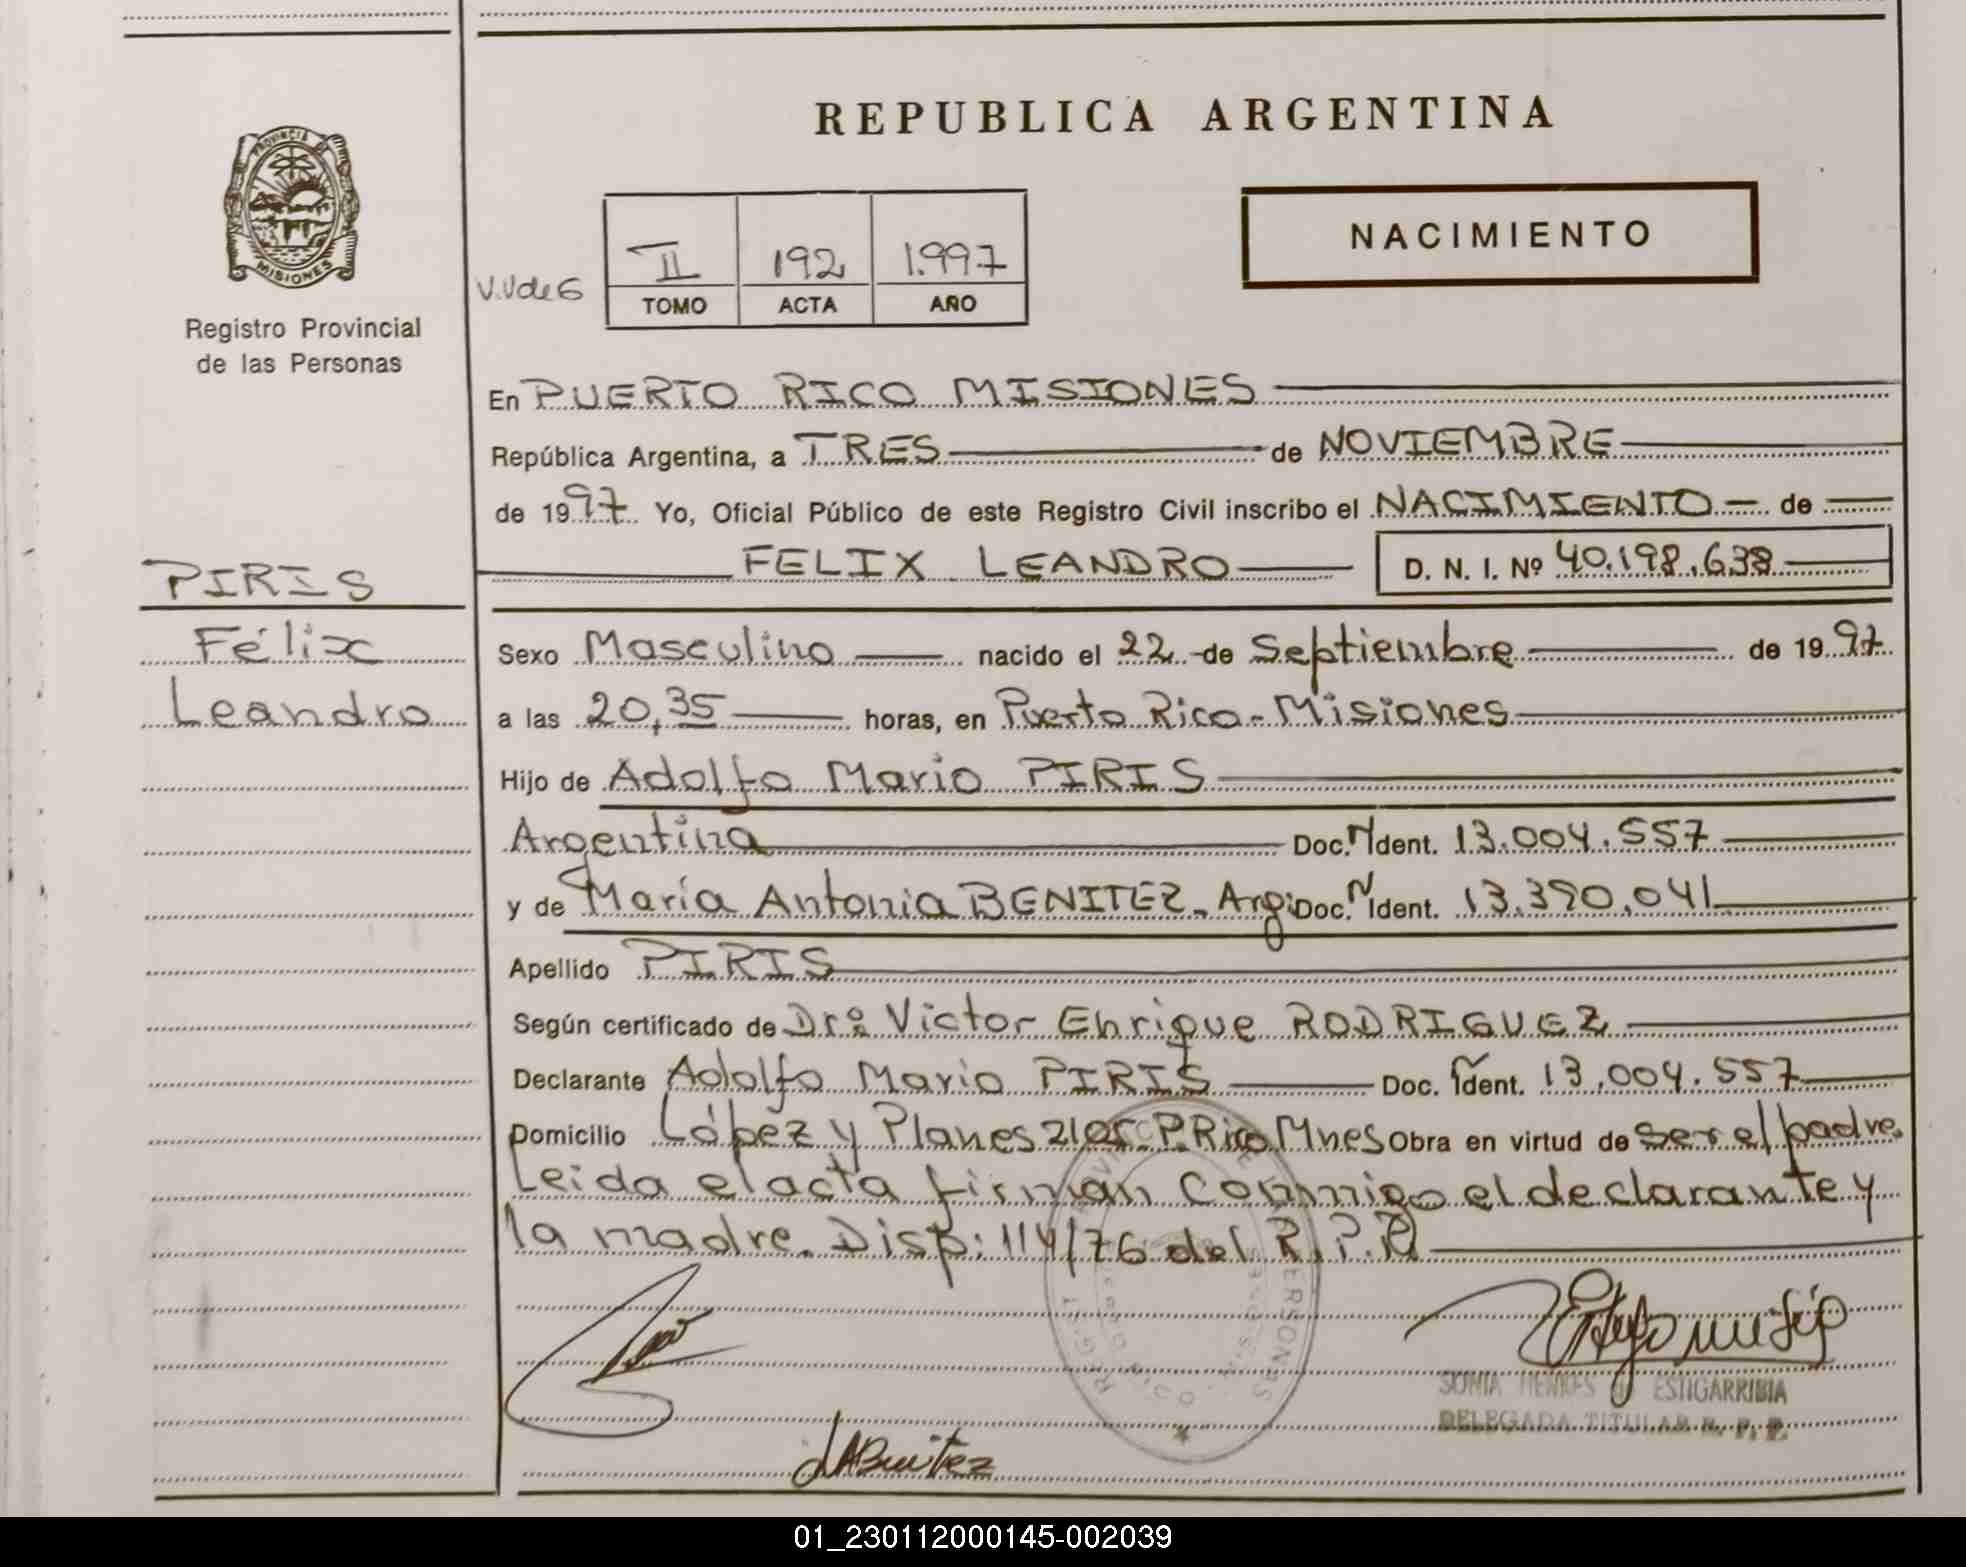 REPUBLICA ARGENTINA
PROVINCIA DE
MISIONES
Registro Provincial
de las Personas
NACIMIENTO
V.V de G
II 192 1.997
TOMO ACTA AÑO
En PUERTO RICO MISIONES
República Argentina, a TRES de NOVIEMBRE
de 1997 Yo, Oficial Público de este Registro Civil inscribo el NACIMIENTO - de
FELIX LEANDRO D. N. I. Nº 40.198.638
PIRIS
Félix
Leandro
Sexo Masculino nacido el 22 de Septiembre de 1997
a las 20,35 horas, en Puerto Rico - Misiones
Hijo de Adolfo Mario PIRIS
Argentina Doc. N Ident. 13.004.557
y de María Antonia BENITEZ - Arg. Doc. N Ident. 13.390.041
Apellido PIRIS
Según certificado de Dr. Victor Enrique RODRIGUEZ
Declarante Adolfo Mario PIRIS Doc. N Ident. 13.004.557
Domicilio López y Planes P. Rico Mnes Obra en virtud de ser el padre.
Leida el acta firman conmigo el declarante y
la madre. Disp: 114/76 del R.P.P
SONIA HENKES de ESTIGARRIBIA
DELEGADA TITULAR R. P. P.
MABenitez
01_230112000145-002039